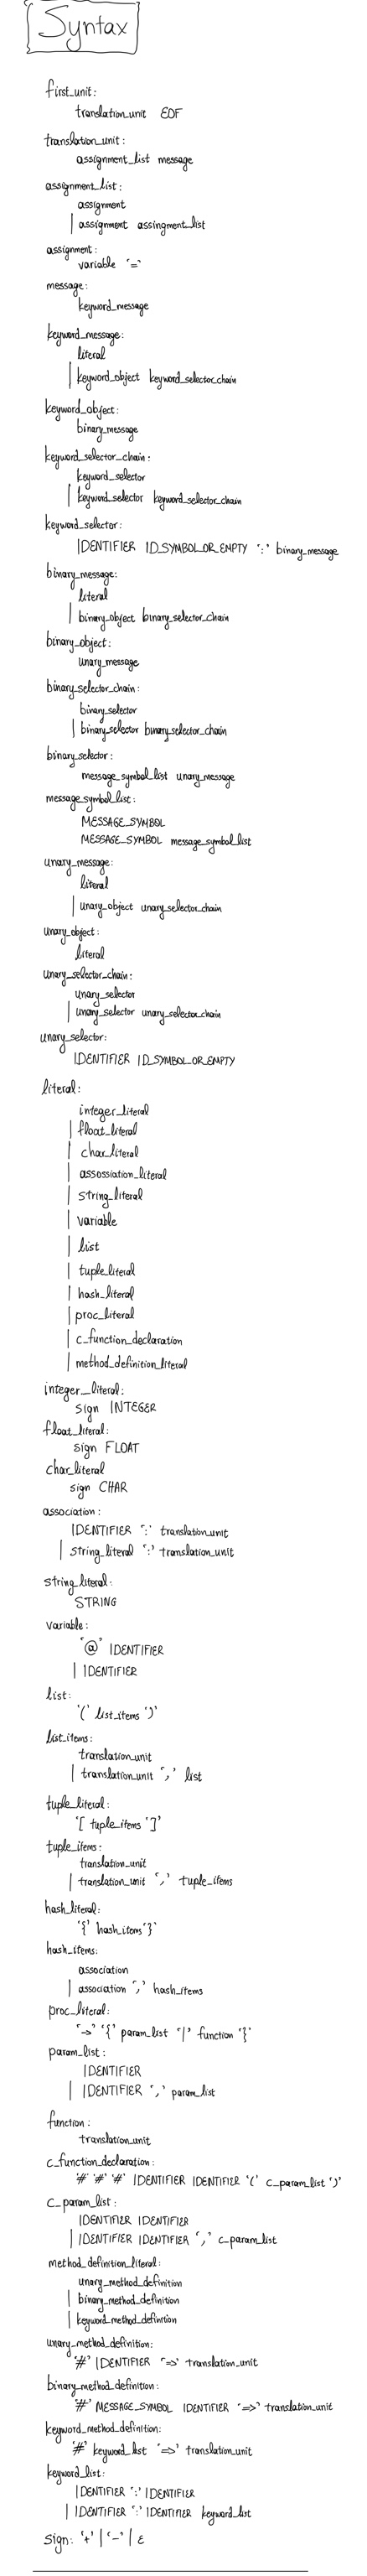 Syntax
first_unit:
translation_unit EOF
translation_unit:
assignment_list message
assignment_list:
assignment
| assignment assingment_list
assignment:
variable '='
message:
keyword_message
keyword_message:
literal
| keyword_object keyword_selector_chain
keyword_object:
binary_message
keyword_selector_chain:
keyword_selector
| keyword_selector keyword_selector_chain
keyword_selector:
IDENTIFIER ID_SYMBOL_OR_EMPTY ':' binary_message
binary_message:
literal
| binary_object binary_selector_chain
binary_object:
unary_message
binary_selector_chain:
binary_selector
| binary_selector binary_selector_chain
binary_selector:
message_symbol_list unary_message
message_symbol_list:
MESSAGE_SYMBOL
MESSAGE_SYMBOL message_symbol_list
unary_message:
literal
| unary_object unary_selector_chain
unary_object:
literal
unary_selector_chain:
unary_selector
| unary_selector unary_selector_chain
unary_selector:
IDENTIFIER ID_SYMBOL_OR_EMPTY
literal:
integer_literal
| float_literal
| char_literal
| assossiation_literal
| string_literal
| variable
| list
| tuple_literal
| hash_literal
| proc_literal
| c_function_declaration
| method_definition_literal
integer_literal:
sign INTEGER
float_literal:
sign FLOAT
char_literal
sign CHAR
association:
IDENTIFIER ':' translation_unit
| string_literal ':' translation_unit
string_literal:
STRING
variable:
'@' IDENTIFIER
| IDENTIFIER
list:
'(' list_items ')'
list_items:
translation_unit
| translation_unit ',' list
tuple_literal:
'[ tuple_items ']'
tuple_items:
translation_unit
| translation_unit ',' tuple_items
hash_literal:
'{' hash_items '}'
hash_items:
association
| association ',' hash_items
proc_literal:
'->' '{' param_list '|' function '}'
param_list:
IDENTIFIER
| IDENTIFIER ',' param_list
function:
translation_unit
c_function_declaration:
'#' '#' '#' IDENTIFIER IDENTIFIER '(' c_param_list ')'
c_param_list:
IDENTIFIER IDENTIFIER
| IDENTIFIER IDENTIFIER ',' c_param_list
method_definition_literal:
unary_method_definition
| binary_method_definition
| keyword_method_definition
unary_method_definition:
'#' IDENTIFIER '=>' translation_unit
binary_method_definition:
'#' MESSAGE_SYMBOL IDENTIFIER '=>' translation_unit
keyword_method_definition:
'#' keyword_list '=>' translation_unit
keyword_list:
IDENTIFIER ':' IDENTIFIER
| IDENTIFIER ':' IDENTIFIER keyword_list
sign: '+' | '-' | ε